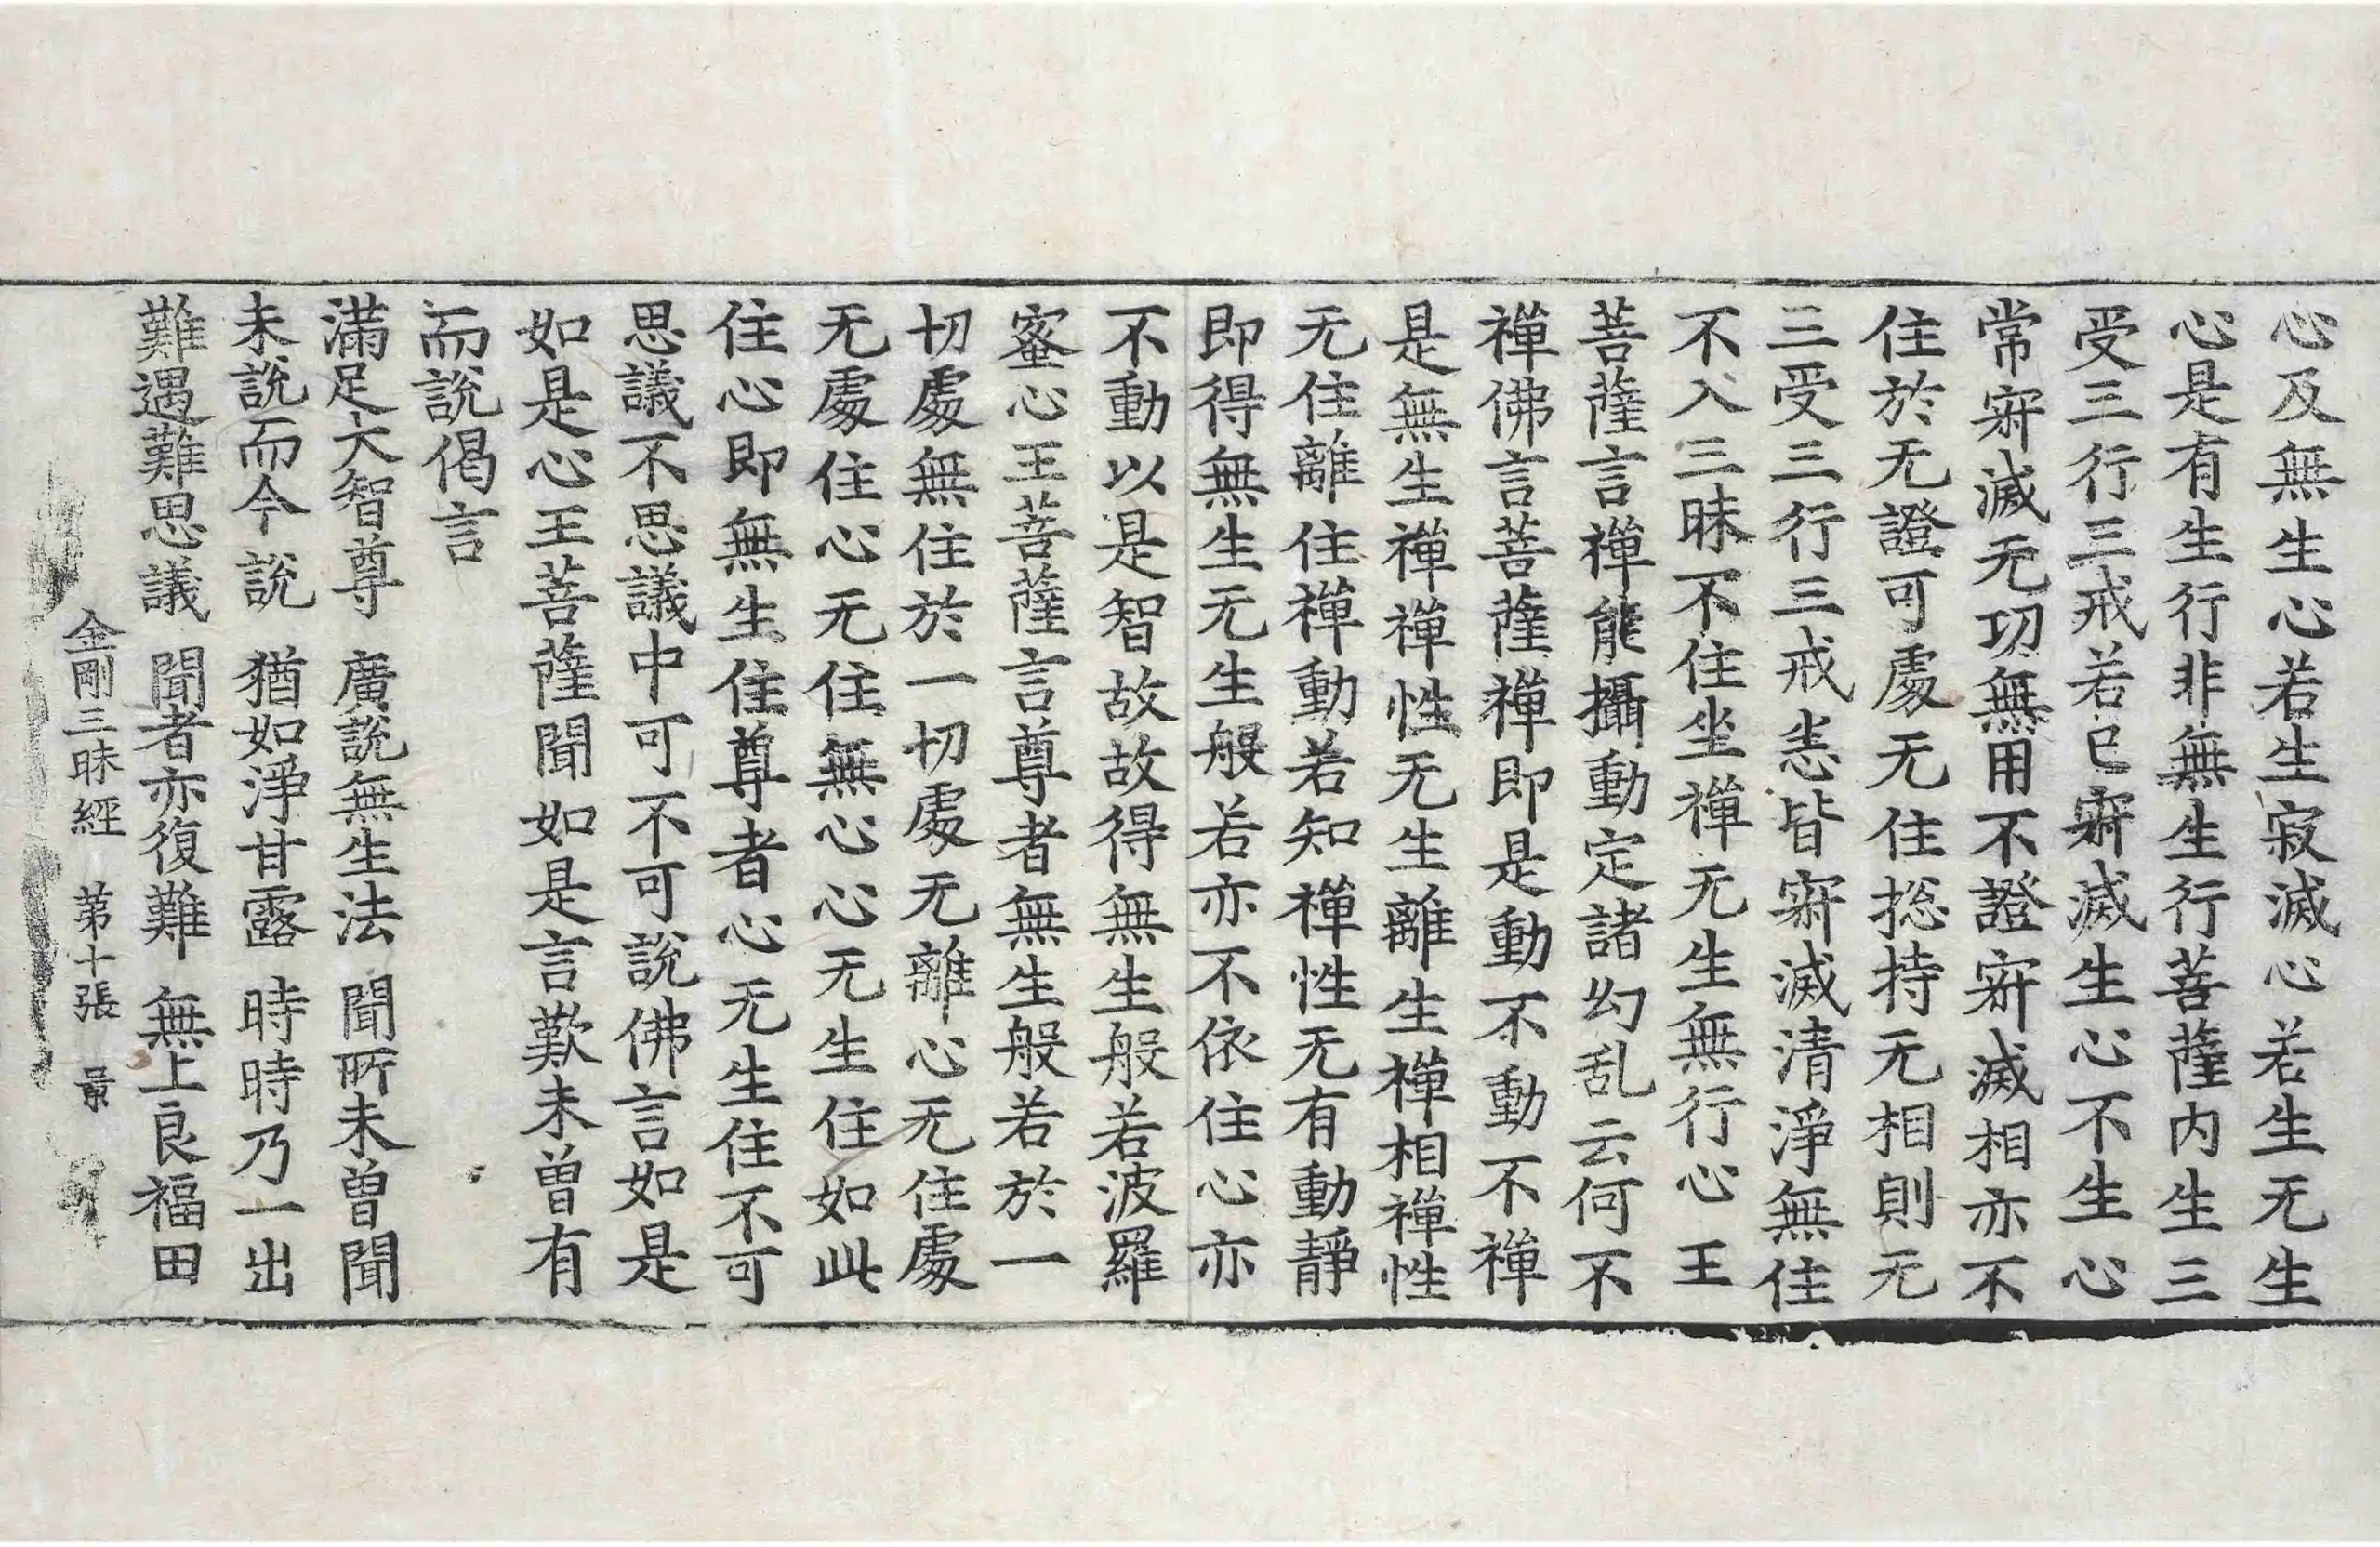 心及無生心若生寂滅心若生无生
心是有生行非無生行菩薩内生三
受三行三戒若已㝛滅生心不生心
常㝛滅无功無用不證㝛滅相亦不
住於无證可處无住捴持无相則无
三受三行三戒恚皆㝛滅清淨無住
不入三昧不住坐禪无生無行心王
菩薩言禪能攝動定諸幻乱云何不
禪佛言菩薩禪即是動不動不禪
是無生禪禪性无生離生禪相禪性
无住離住禪動若知禪性无有動靜
即得無生无生般若亦不依住心亦
不動以是智故故得無生般若波羅
蜜心王菩薩言尊者無生般若於一
切處無住於一切處无離心无住處
无處住心无住無心心无生住如此
住心即無生住尊者心无生住不可
思議不思議中可不可說佛言如是
如是心王菩薩聞如是言歎未曾有
而說偈言
滿足大智尊 廣說無生法 聞所未曾聞
未說而今說 猶如淨甘露 時時乃一出
難遇難思議 聞者亦復難 無上良福田
金剛三昧經 苐十張